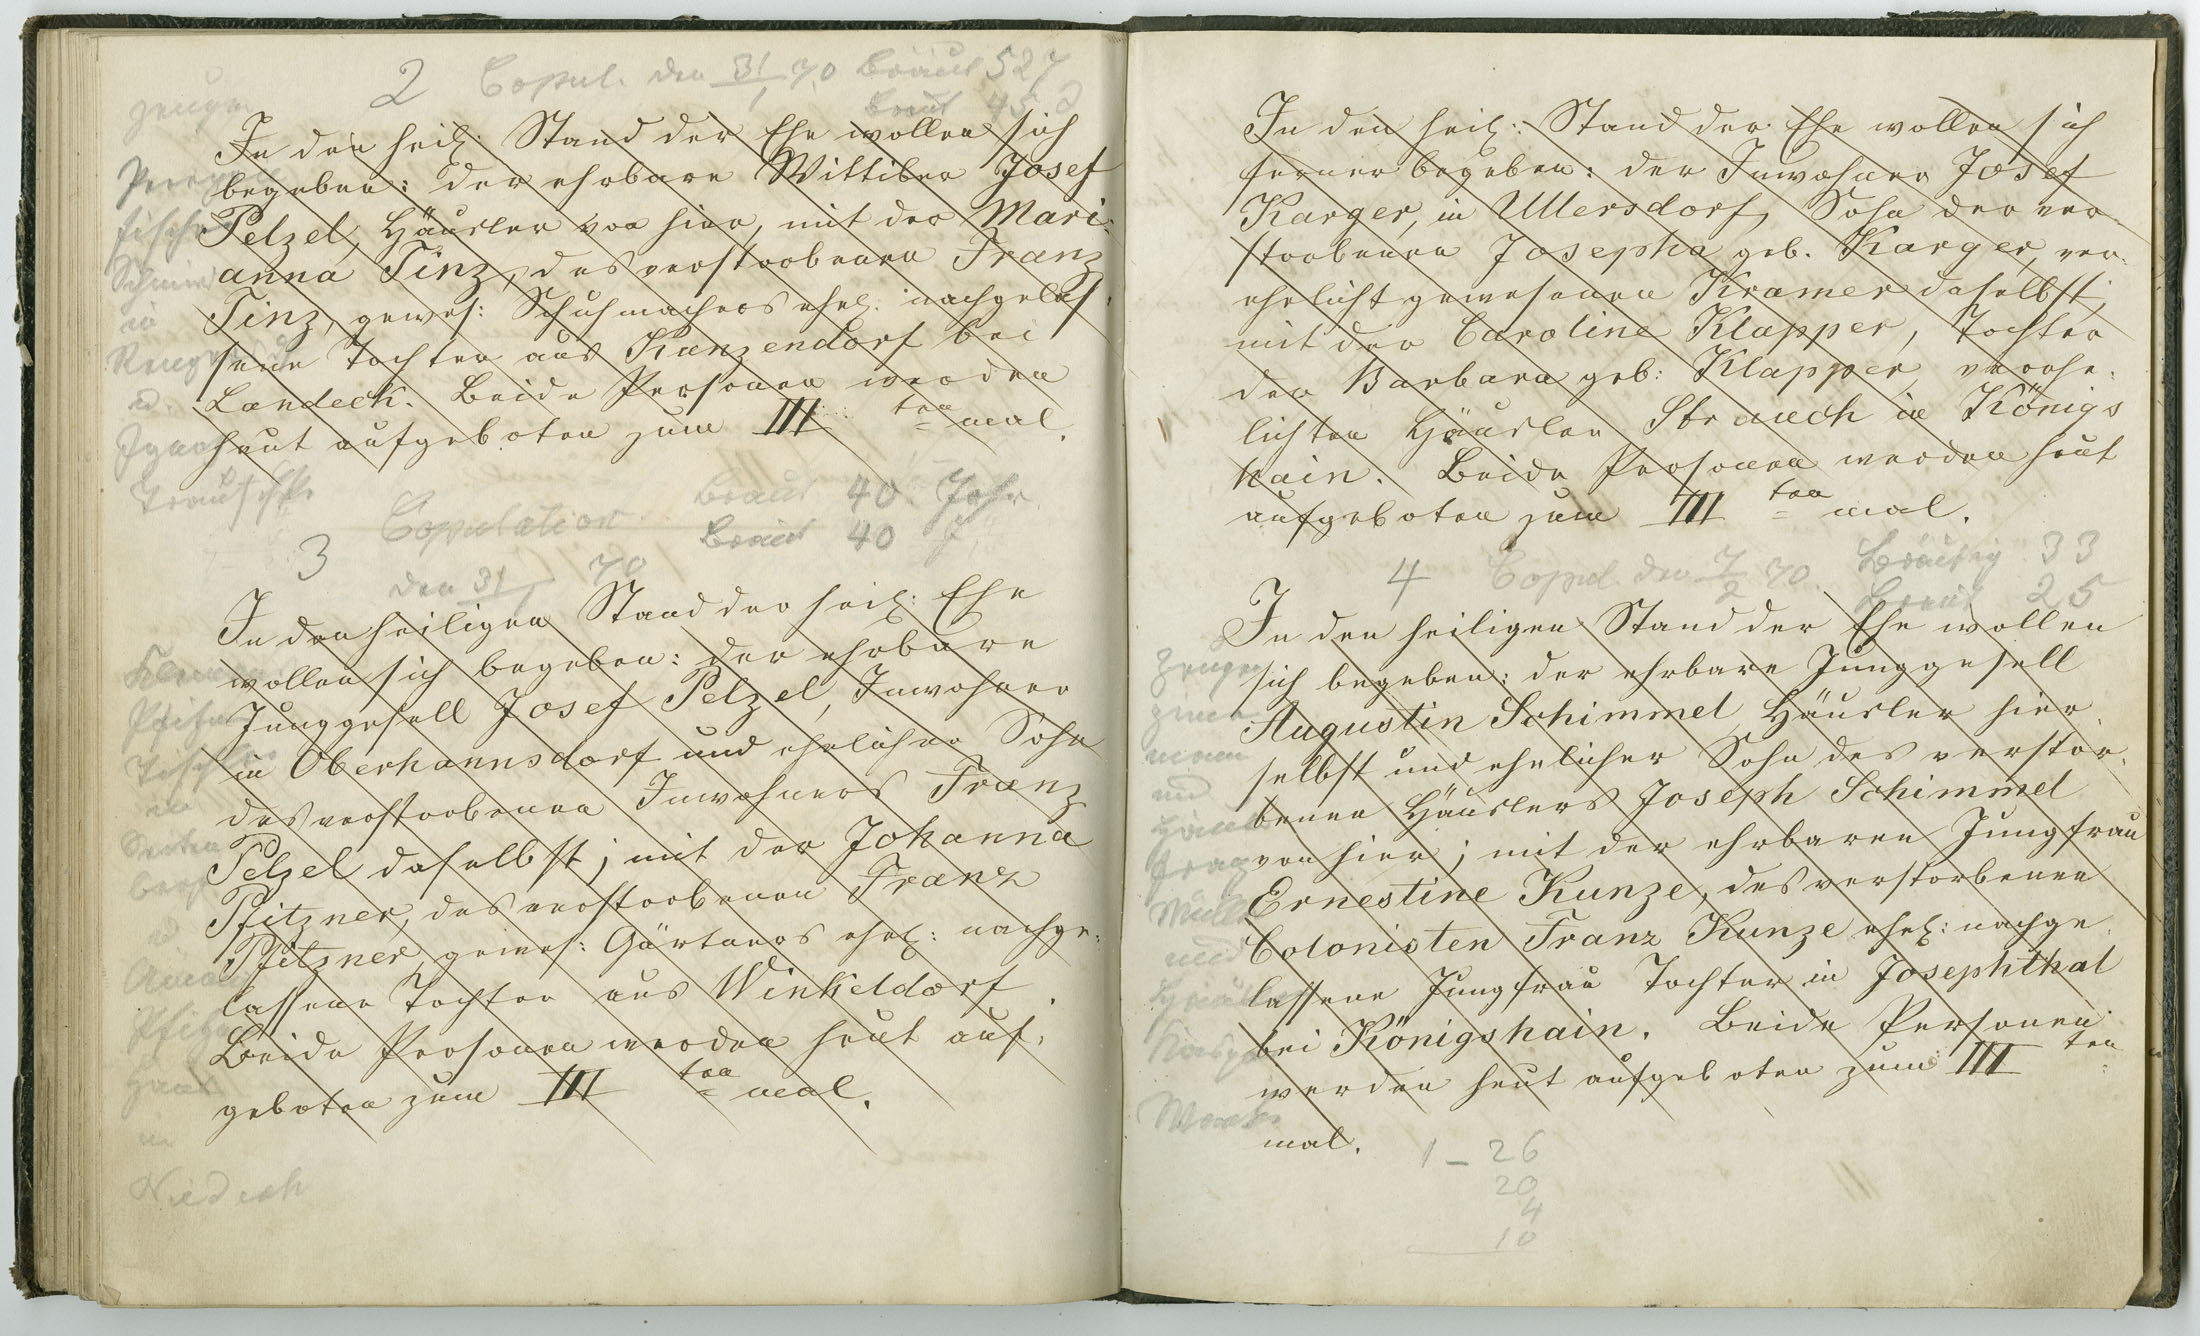 2 Copul. den 31/1 70 Bräut 52 J
Braut 45 J
Zeugen
In den heil: Stand der Ehe wollen sich
begeben: der ehrbare Wittiber Josef
Pelzel, Häusler von hier, mit der Mari-
anna Tinz, des verstorbenen Franz
Tinz, gewes: Schuhmachers ehel. nachgelas-
sene Tochter aus Kunzendorf bei
Landeck. Beide Personen werden
heut aufgeboten zum III ten mal.
3 Copulation
den 31/1 70
Bräut 40 Jahr
Braut 40 J
In den heiligen Stand der heil: Ehe
wollen sich begeben: der ehrbare
Junggesell Josef Pelzel, Inwohner
in Oberhannsdorf und ehelicher Sohn
des verstorbenen Inwohners Franz
Pelzel daselbst; mit der Johanna
Pfitzner, des verstorbenen Franz
Pfitzner, gewes: Gärtners ehel: nachge-
lassene Tochter aus Winkeldorf.
Beide Personen werden heut auf-
geboten zum III ten mal.
In den heil: Stand der Ehe wollen sich
ferner begeben: der Inwohner Josef
Karger, in Ullersdorf, Sohn der ver-
storbenen Josepha geb. Karger, ver-
ehelicht gewesenen Kramer daselbst;
mit der Caroline Klapper, Tochter
der Barbara geb: Klapper, verehe-
lichten Häusler Strauch in Königs
hain. Beide Personen werden heut
aufgeboten zum III ten mal.
4 Copul. den 7/2 70. Bräutig 33
Braut 25
Zeugen
In den heiligen Stand der Ehe wollen
sich begeben: der ehrbare Junggesell
Augustin Schimmel, Häusler hier-
selbst und ehelicher Sohn des verstor-
benen Häuslers Joseph Schimmel
von hier; mit der ehrbaren Jungfrau
Ernestine Kunze, des verstorbenen
Colonisten Franz Kunze ehel: nachge-
lassene Jungfrau Tochter in Josephthal
bei Königshain. Beide Personen
werden heut aufgeboten zum III ten
mal.
1 – 26
20
4
10